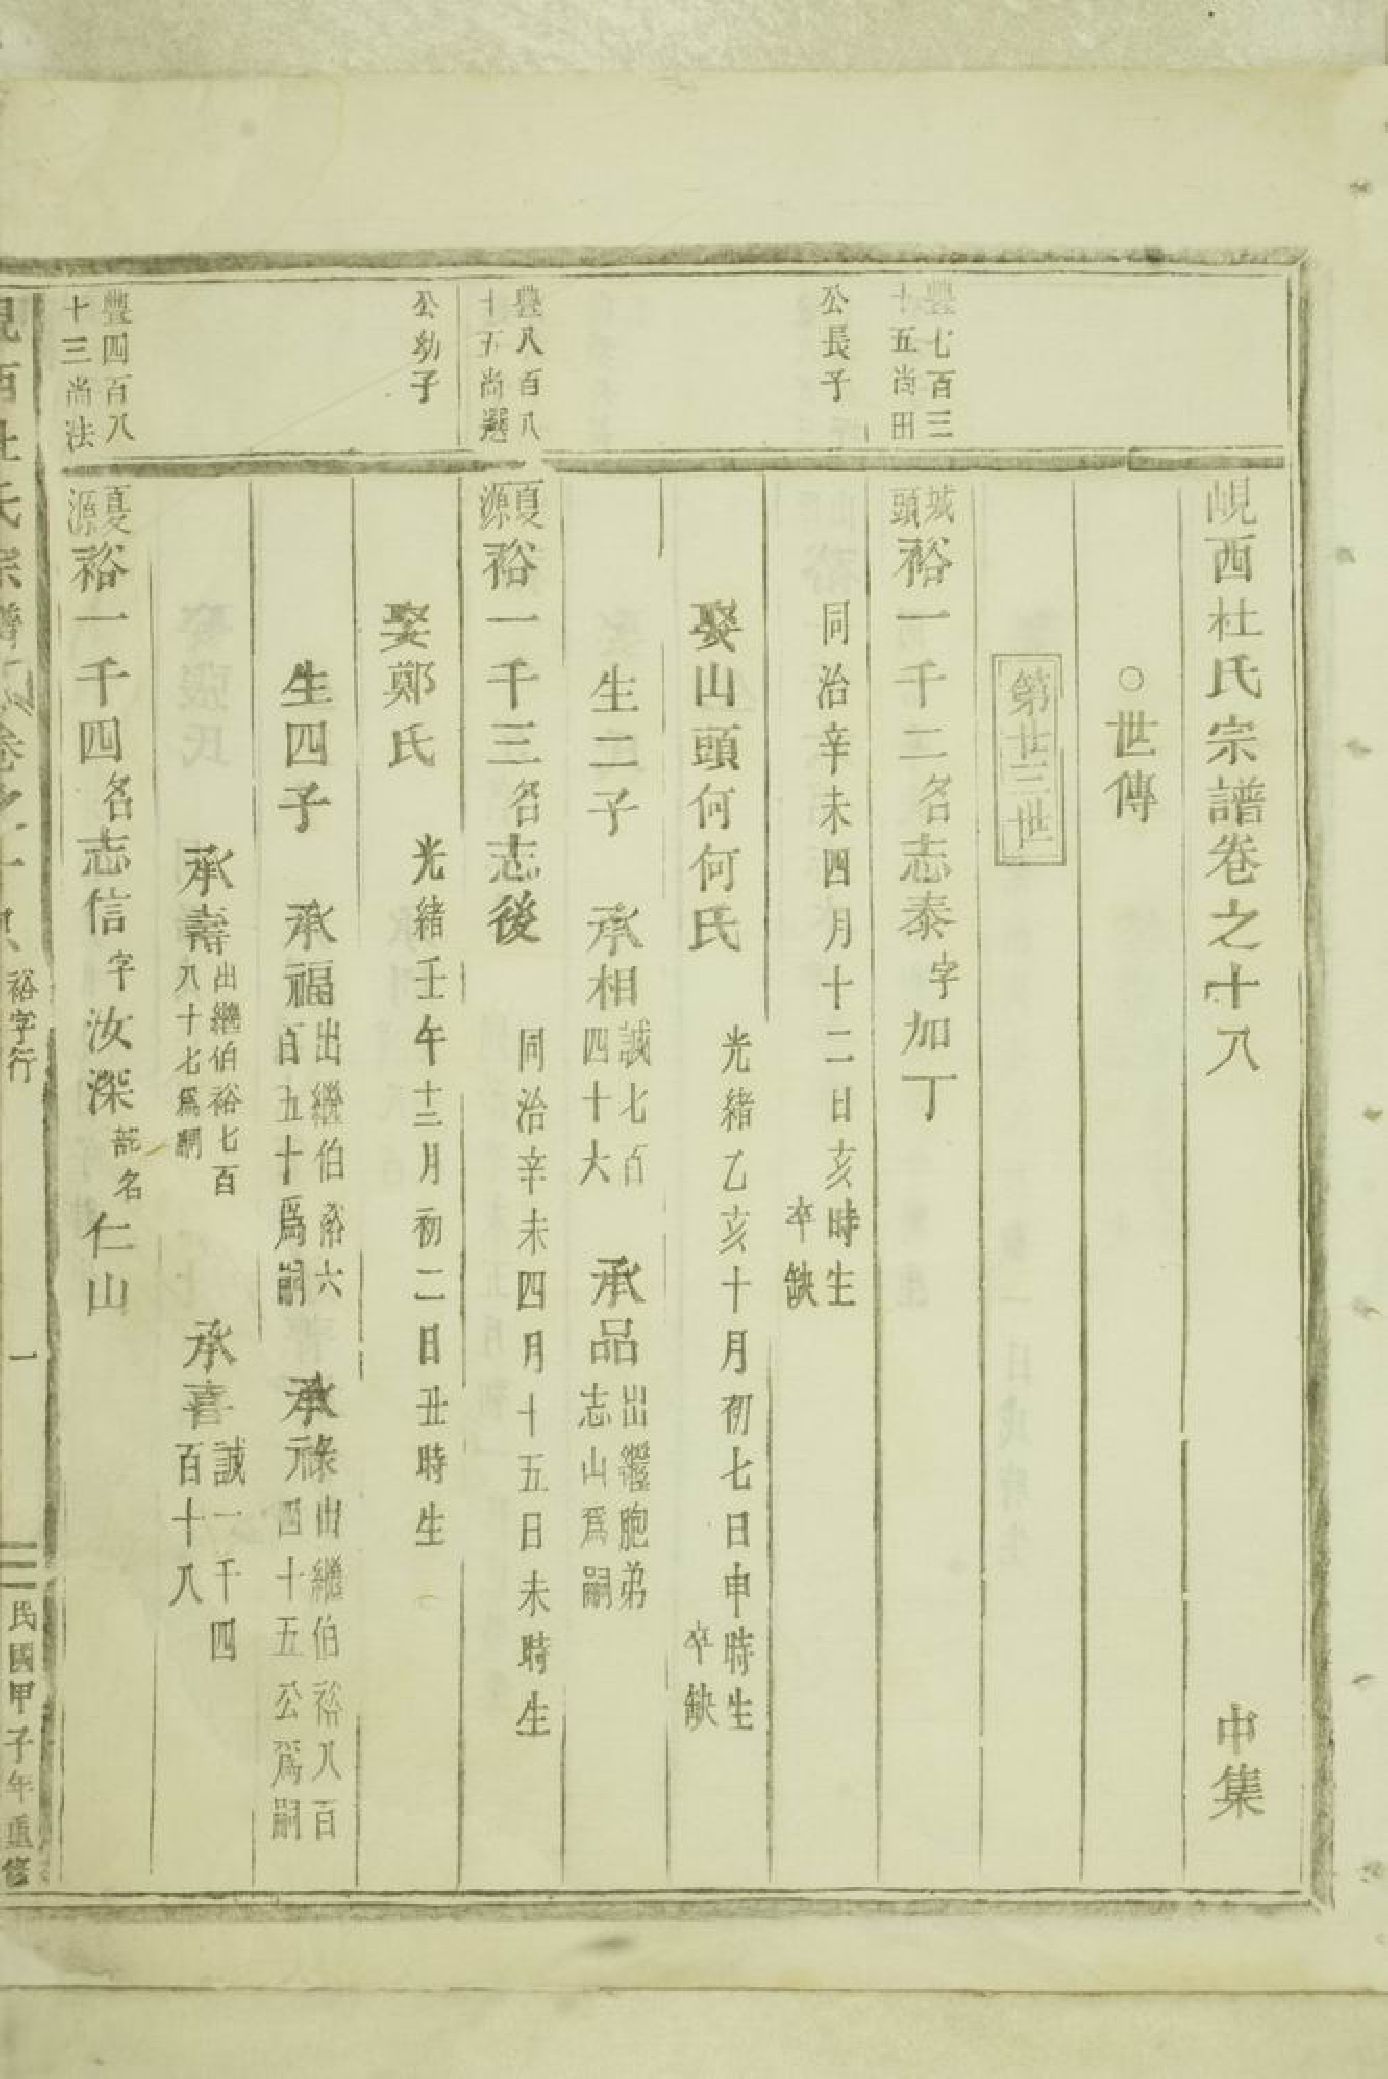 峴西杜氏宗譜卷之十八 中集
○世傳
第廿三世
豐七百三
十五尚田
公長子
城頭裕一千二名志泰字加丁
同治辛未四月十二日亥時生
卒缺
娶山頭何何氏 光緒乙亥十月初七日申時生
卒缺
生二子 承相誠七百四十六 承品出繼胞弟志山為嗣
豐八百八
十五尚選
公幼子
夏源裕一千三名志後 同治辛未四月十五日未時生
娶鄭氏 光緒壬午十二月初二日丑時生
生四子 承福出繼伯裕六百五十為嗣 承祿出繼伯裕八百四十五公為嗣
承壽出繼伯裕七百八十七為嗣 承喜誠一千四百十八
豐四百八
十三尚法
夏源裕一千四名志信字汝深誮名仁山
峴西杜氏宗譜 卷之十八 裕字行 一 民國甲子年重修